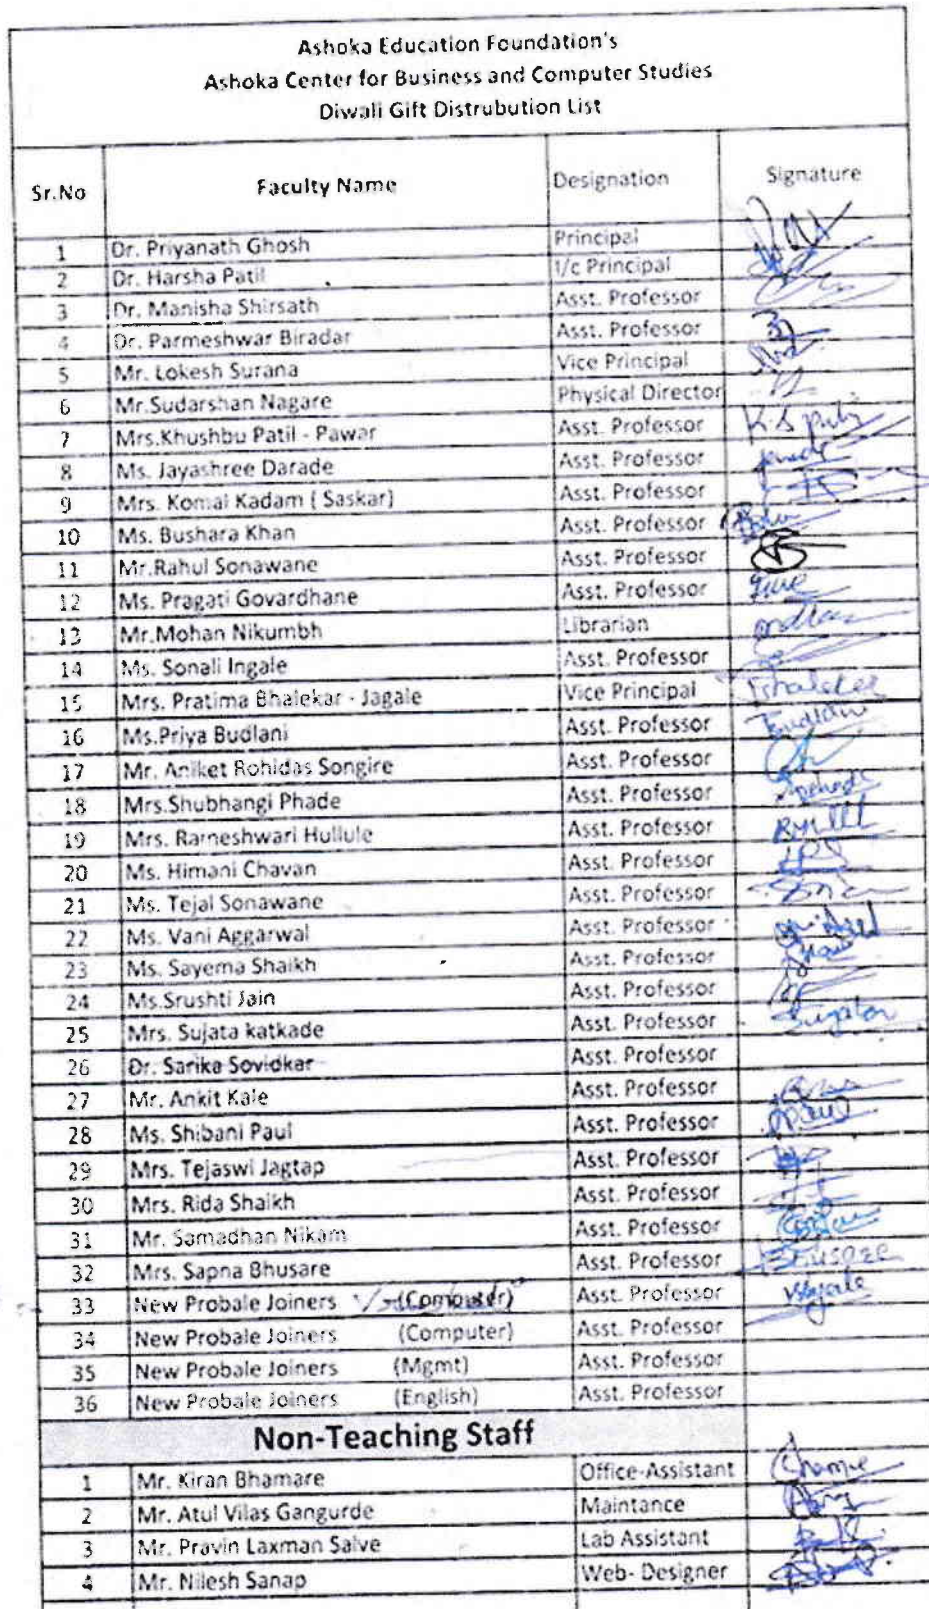 Ashoka Education Foundation's
Ashoka Center for Business and Computer Studies
Diwali Gift Distrubution List
Sr.No Faculty Name Designation Signature
1 Dr. Priyanath Ghosh Principal
2 Dr. Harsha Patil I/c Principal
3 Dr. Manisha Shirsath Asst. Professor
4 Dr. Parmeshwar Biradar Asst. Professor
5 Mr. Lokesh Surana Vice Principal
6 Mr.Sudarshan Nagare Physical Director
7 Mrs.Khushbu Patil - Pawar Asst. Professor
8 Ms. Jayashree Darade Asst. Professor
9 Mrs. Komal Kadam ( Saskar) Asst. Professor
10 Ms. Bushara Khan Asst. Professor
11 Mr.Rahul Sonawane Asst. Professor
12 Ms. Pragati Govardhane Asst. Professor
13 Mr.Mohan Nikumbh Librarian
14 Ms. Sonali Ingale Asst. Professor
15 Mrs. Pratima Bhalekar - Jagale Vice Principal
16 Ms.Priya Budlani Asst. Professor
17 Mr. Aniket Rohidas Songire Asst. Professor
18 Mrs.Shubhangi Phade Asst. Professor
19 Mrs. Rameshwari Hullule Asst. Professor
20 Ms. Himani Chavan Asst. Professor
21 Ms. Tejal Sonawane Asst. Professor
22 Ms. Vani Aggarwal Asst. Professor
23 Ms. Sayema Shaikh Asst. Professor
24 Ms.Srushti Jain Asst. Professor
25 Mrs. Sujata katkade Asst. Professor
26 Dr. Sarika Sovidkar Asst. Professor
27 Mr. Ankit Kale Asst. Professor
28 Ms. Shibani Paul Asst. Professor
29 Mrs. Tejaswi Jagtap Asst. Professor
30 Mrs. Rida Shaikh Asst. Professor
31 Mr. Samadhan Nikam Asst. Professor
32 Mrs. Sapna Bhusare Asst. Professor
33 New Probale Joiners (Computer) Asst. Professor
34 New Probale Joiners (Computer) Asst. Professor
35 New Probale Joiners (Mgmt) Asst. Professor
36 New Probale Joiners (English) Asst. Professor
Non-Teaching Staff
1 Mr. Kiran Bhamare Office-Assistant
2 Mr. Atul Vilas Gangurde Maintance
3 Mr. Pravin Laxman Salve Lab Assistant
4 Mr. Nilesh Sanap Web- Designer